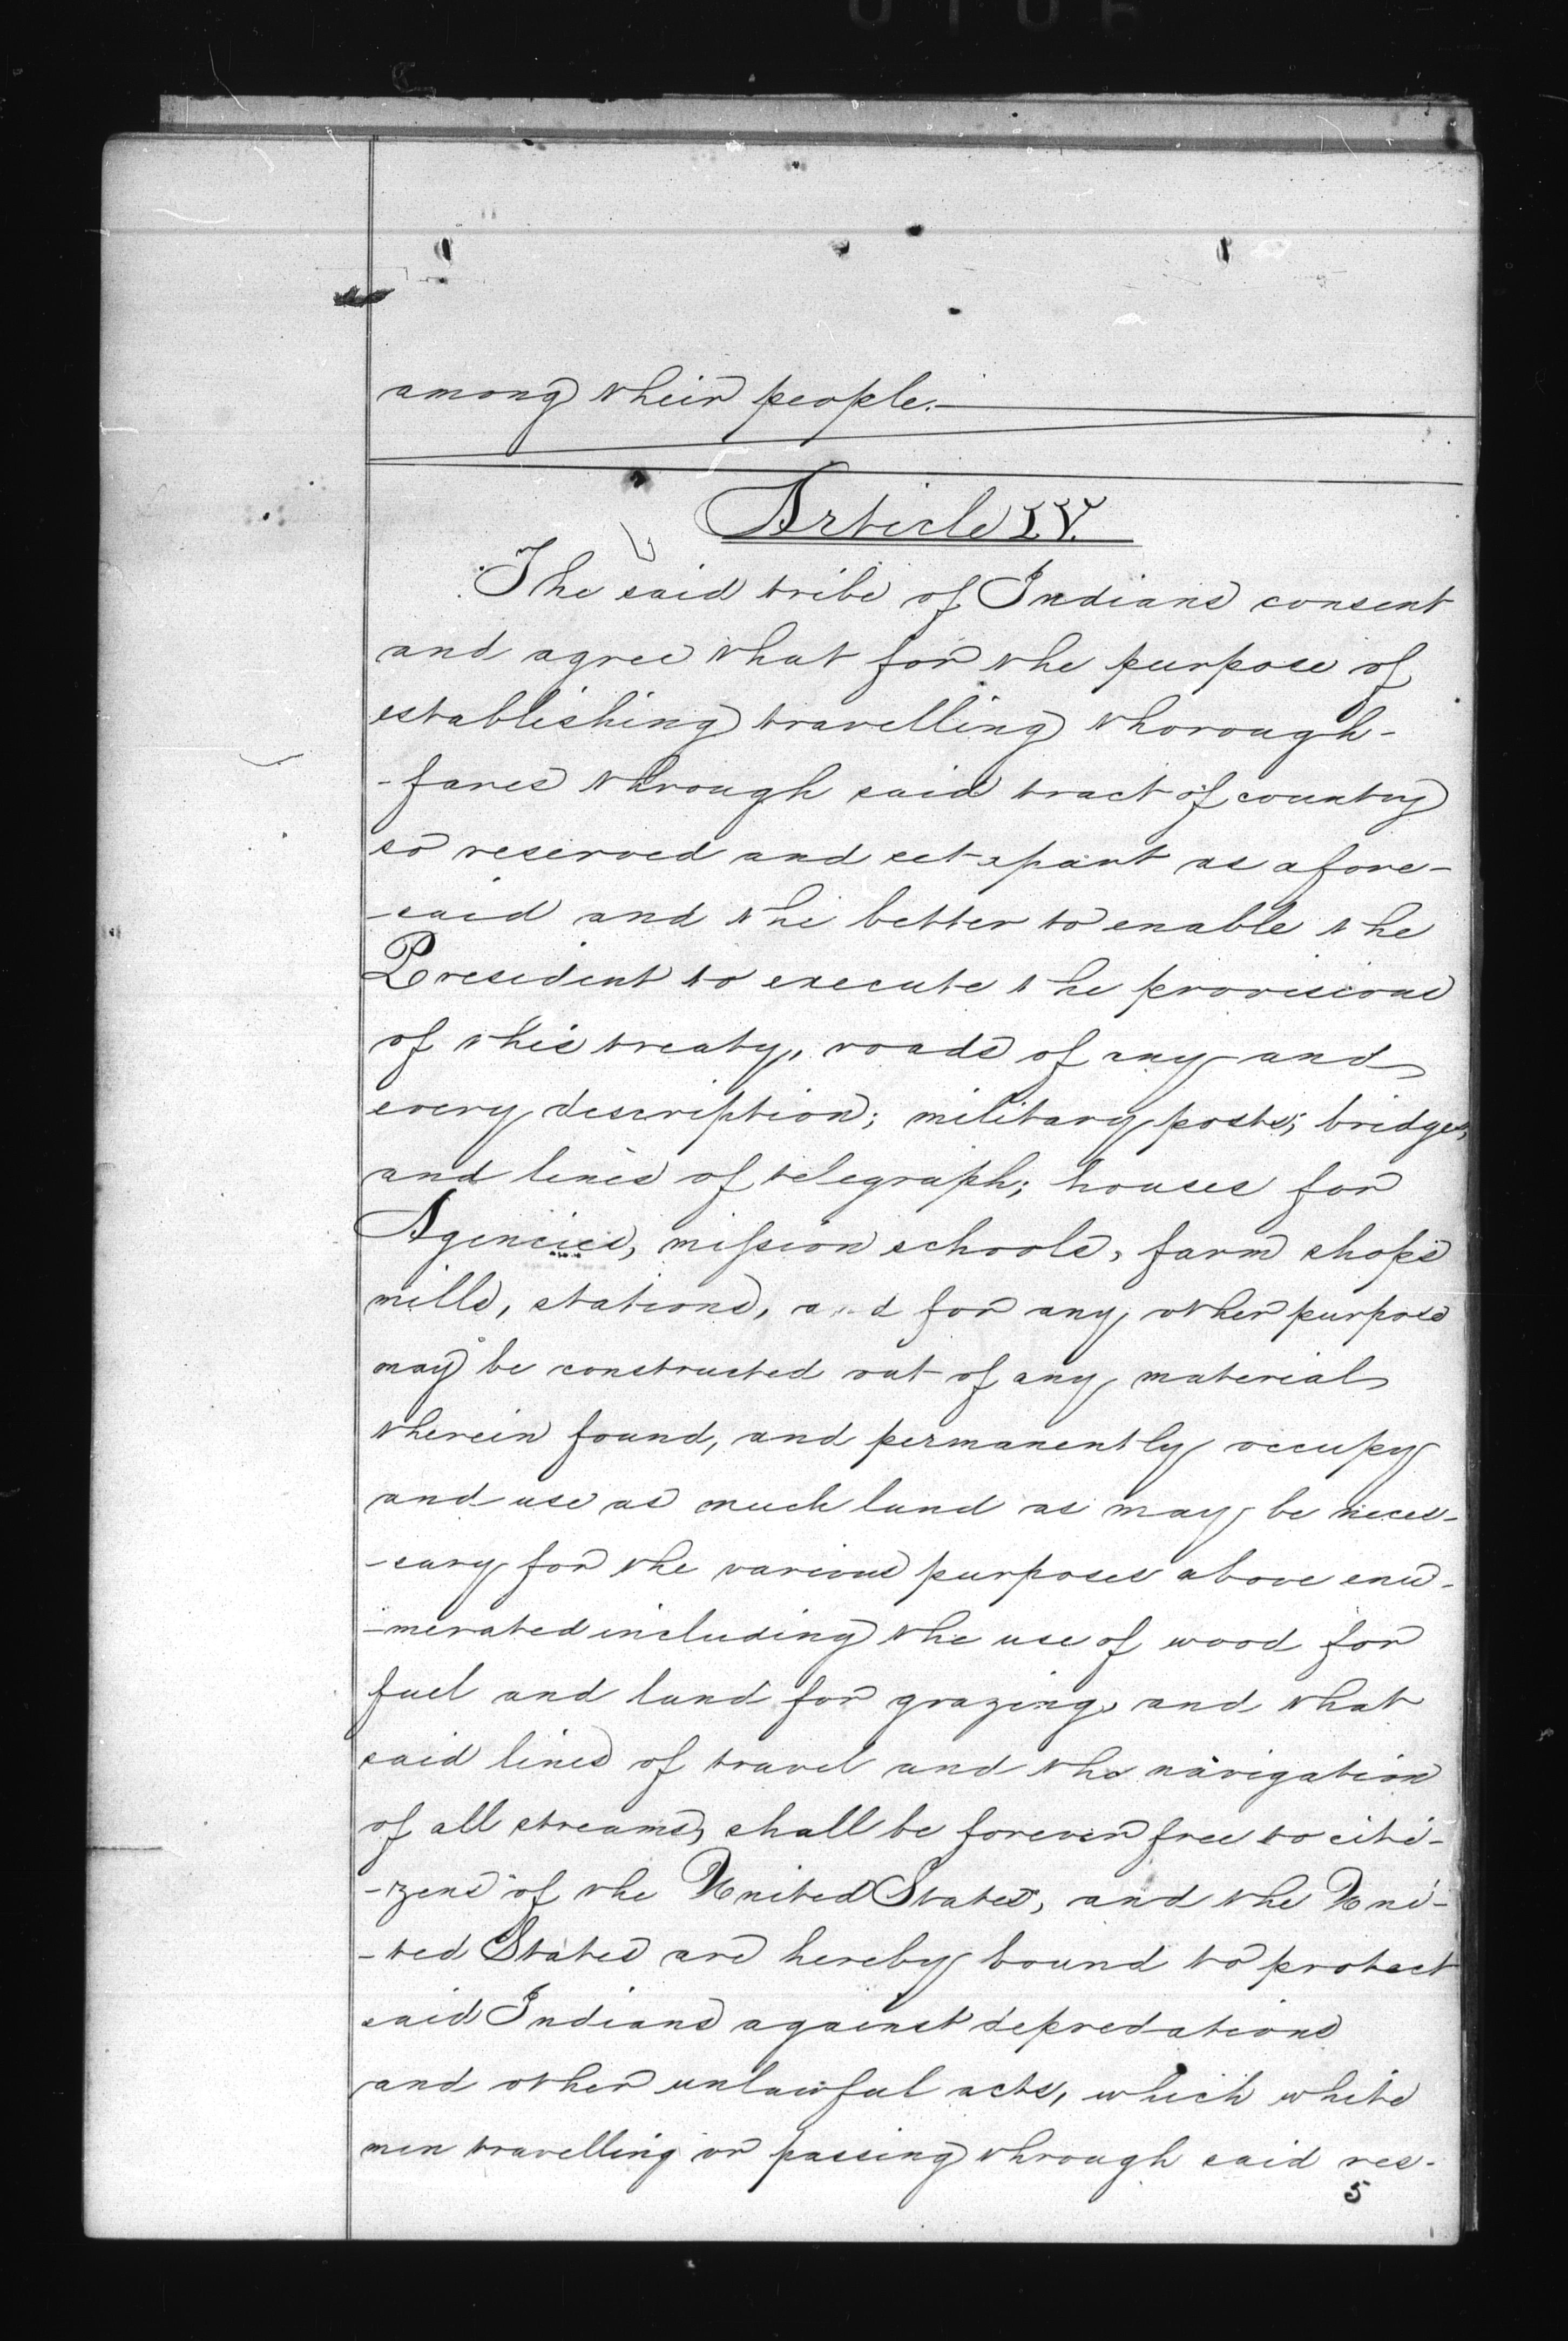 among their people.
Article IV.
The said tribe of Indians consent
and agree that for the purpose of
establishing travelling thorough-
-fares through said tract of country
so reserved and set apart as afore-
-said and the better to enable the
President to execute the provisions
of this treaty, roads of any and
every description; military posts; bridges,
and lines of telegraph; houses for
Agencies, mission schools, farm shops
mills, stations, and for any other purpose
may be constructed out of any material
therein found, and permanently occupy
and use as much land as may be neces-
-sary for the various purposes above enu-
-merated including the use of wood for
fuel and land for grazing, and that
said lines of travel and the navigation
of all streams, shall be forever free to citi-
-zens of the United States, and the Uni-
-ted States are hereby bound to protect
said Indians against depredations
and other unlawful acts, which white
men travelling or passing through said res-
5